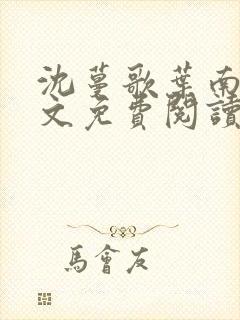 沈蔓歌葉南
文免費閱讀
馬會友